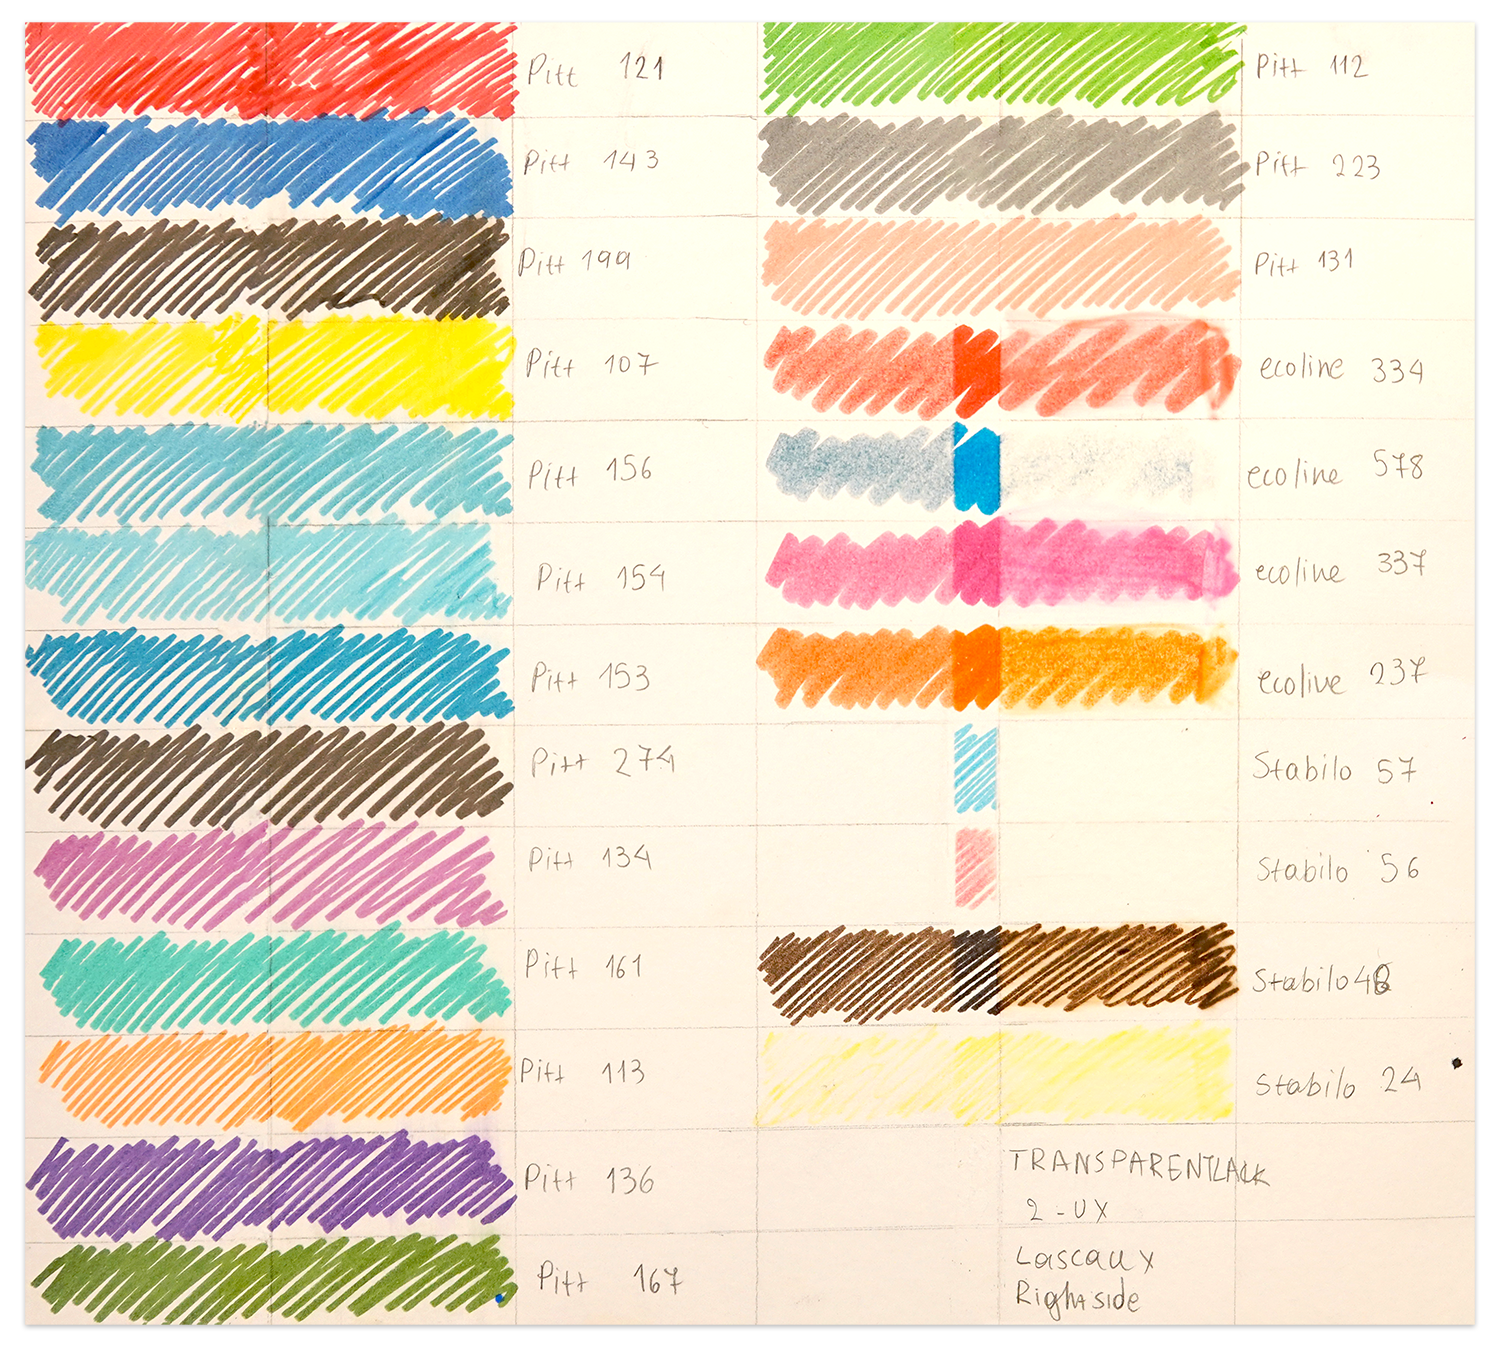 Pitt 121
Pitt 143
Pitt 199
Pitt 107
Pitt 156
Pitt 154
Pitt 153
Pitt 274
Pitt 134
Pitt 161
Pitt 113
Pitt 136
Pitt 167
Pitt 112
Pitt 223
Pitt 131
ecoline 334
ecoline 578
ecoline 337
ecoline 237
Stabilo 57
Stabilo 56
Stabilo
Stabilo 24
TRANSPARENTLACK
2-UX
Lascaux
Righside